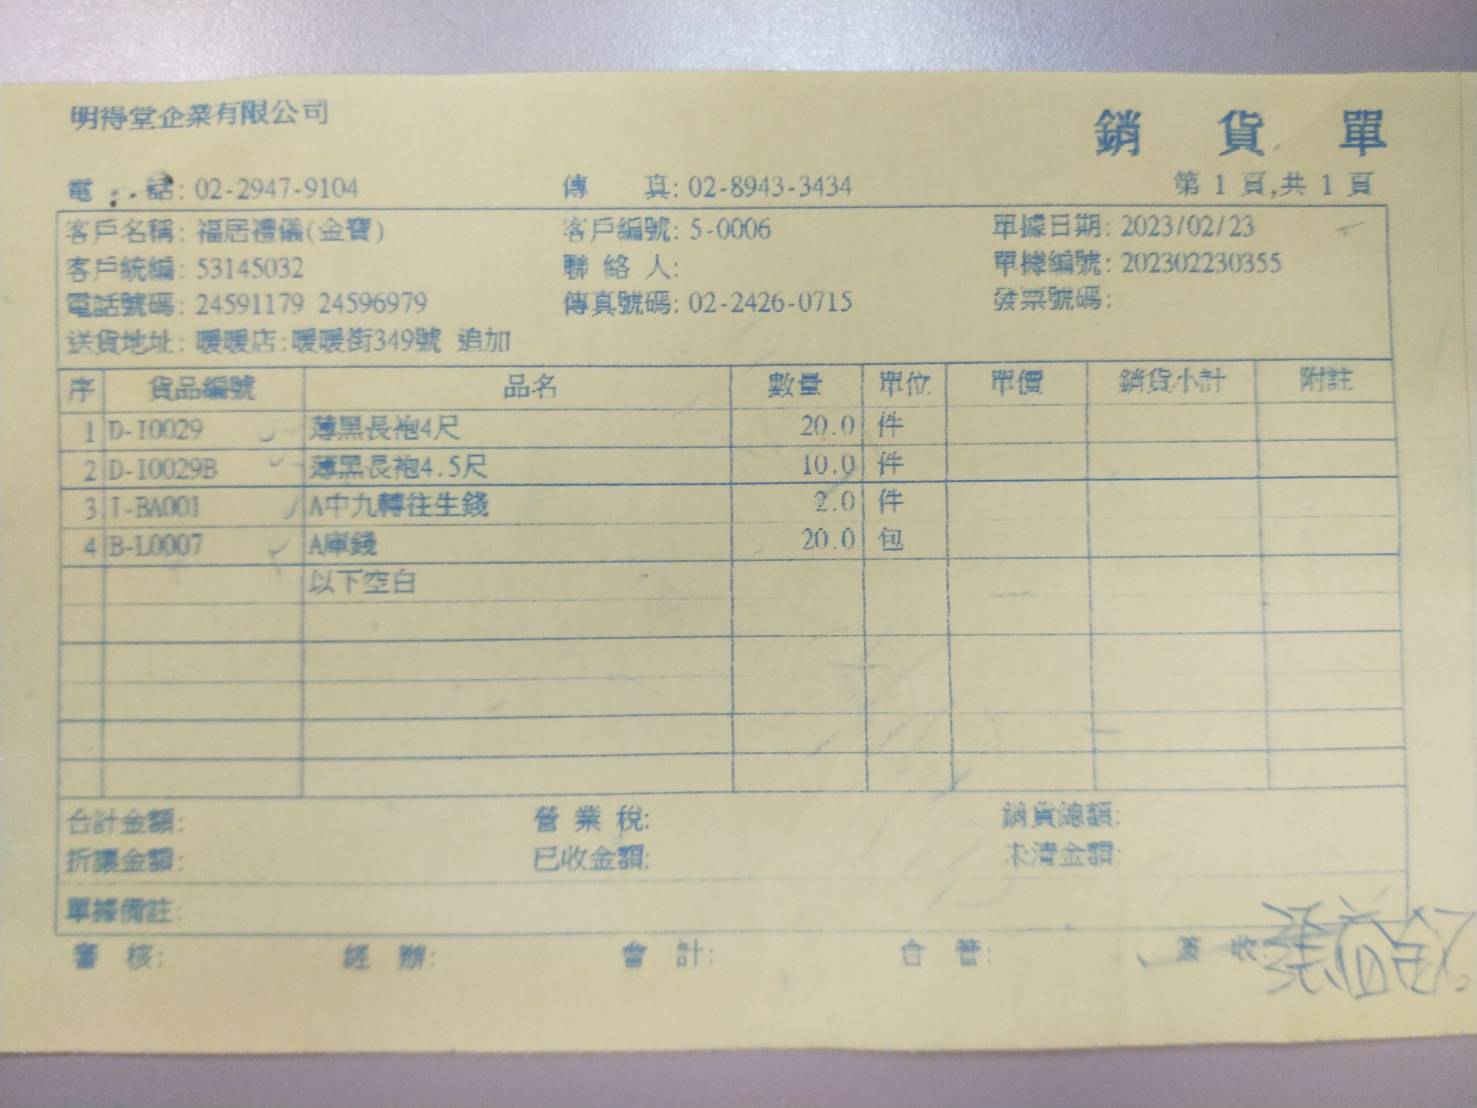 明得堂企業有限公司
銷 貨 單
電 話: 02-2947-9104 傳 真: 02-8943-3434 第 1 頁,共 1 頁
客戶名稱: 福居禮儀(金寶) 客戶編號: 5-0006 單據日期: 2023/02/23
客戶統編: 53145032 聯 絡 人: 單據編號: 202302230355
電話號碼: 24591179 24596979 傳真號碼: 02-2426-0715 發票號碼:
送貨地址: 暖暖店:暖暖街349號 追加
序 貨品編號 品名 數量 單位 單價 銷貨小計 附註
1 D-I0029 薄黑長袍4尺 20.0 件
2 D-I0029B 薄黑長袍4.5尺 10.0 件
3 I-BA001 A中九轉往生錢 2.0 件
4 B-L0007 A庫錢 20.0 包
以下空白
合計金額: 營 業 稅: 銷貨總額:
折讓金額: 已收金額: 未清金額:
單據備註:
審 核: 經 辦: 會 計: 倉 管: